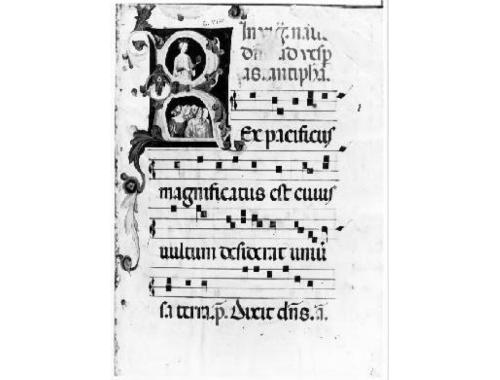 In vigl. natiu
dni. ad vesp
as. antipha.
REx pacificus
magnificatus est cuius
uultum desiderat uniu
sa terra. p. Dixit dns. a.